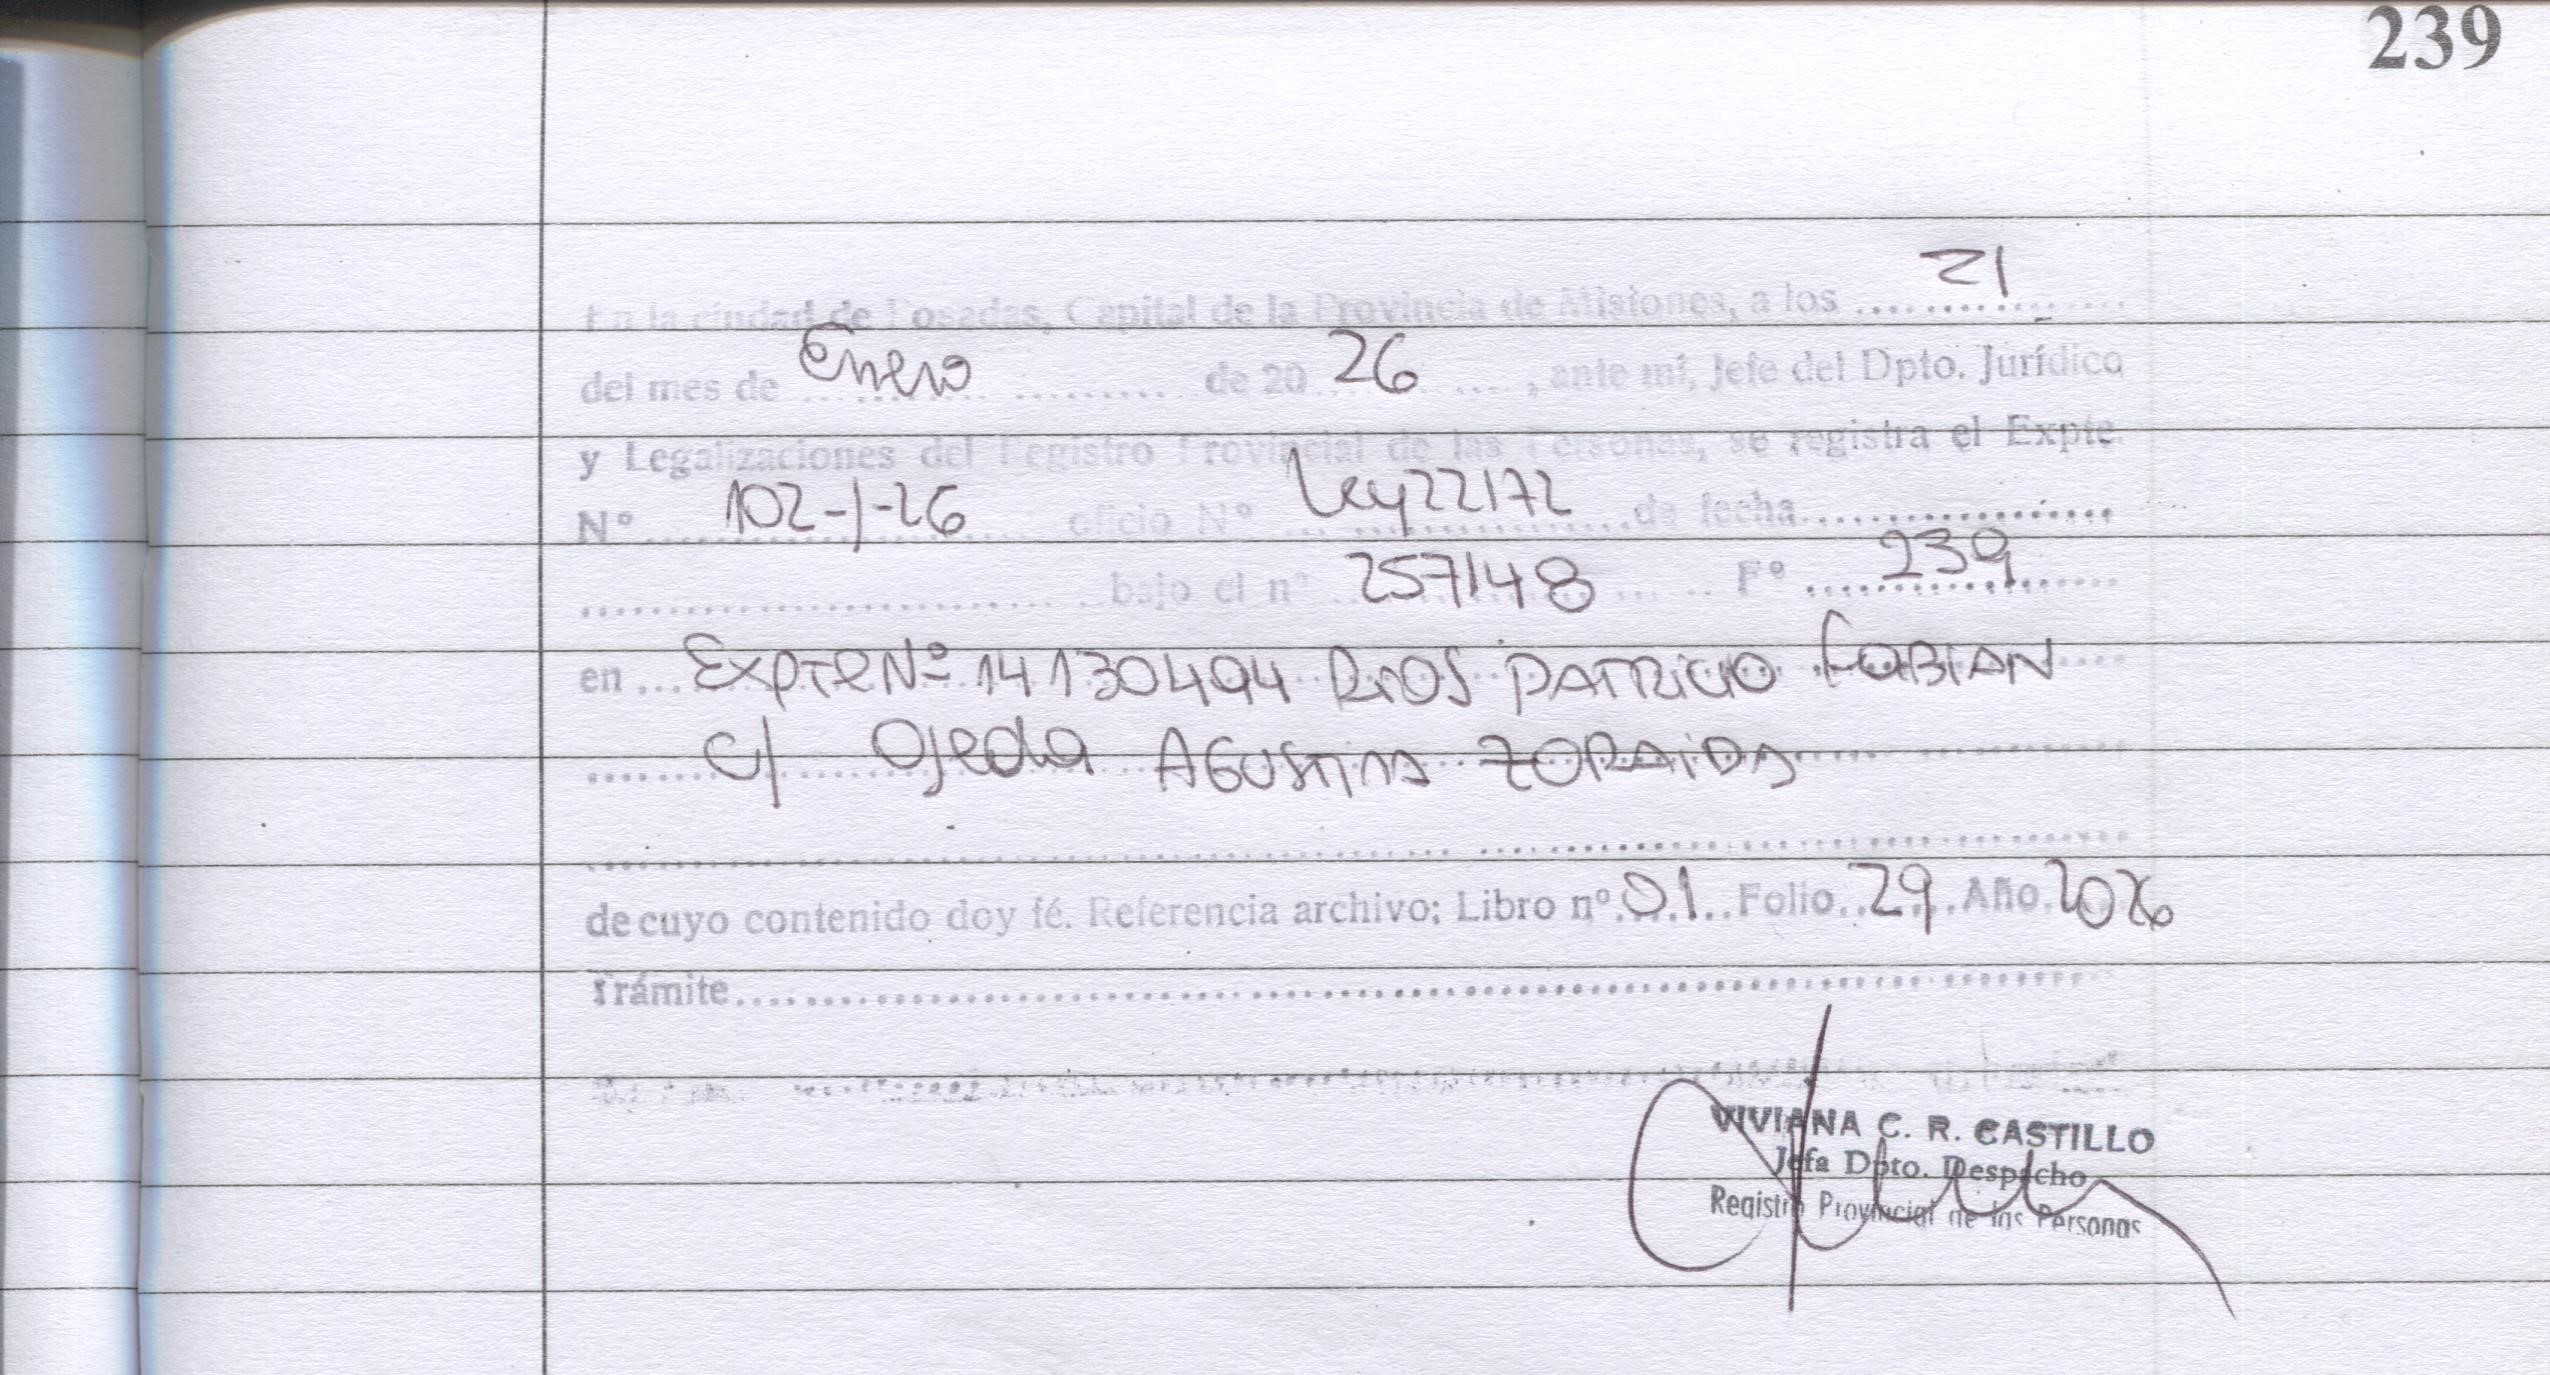 239
En la ciudad de Posadas, Capital de la Provincia de Misiones, a los 21
del mes de Enero de 20 26, ante mí, Jefe del Dpto. Jurídico
y Legalizaciones del Registro Provincial de las Personas, se registra el Expte.
Nº 102-J-26 oficio Nº Ley 22172 de fecha
bajo el nº 257148 Fº 239
en Expte Nº 14130494 Rios Patricio Fabian
c/ Ojeda Agustina Zoraida
de cuyo contenido doy fé. Referencia archivo; Libro nº 01 Folio 29 Año 2026
Trámite
VIVIANA C. R. CASTILLO
Jefa Dpto. Despacho
Registro Provincial de las Personas